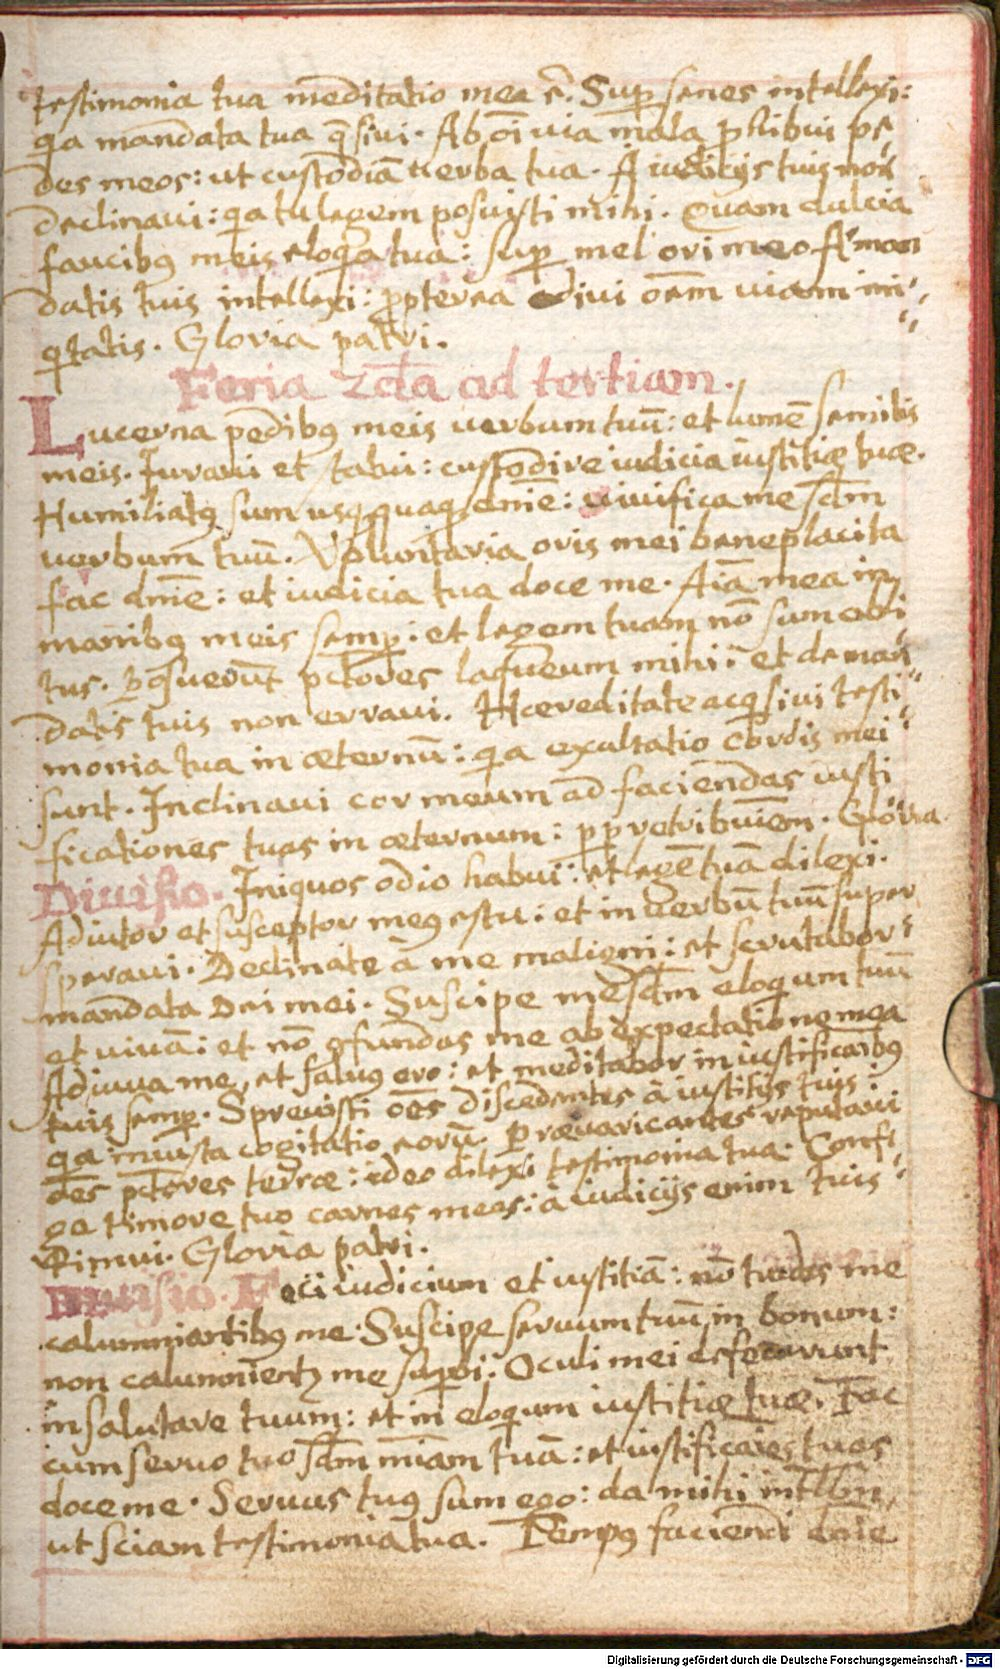 testimonia tua meditatio mea ē. Sup̱ senes intellexi:
q̇a mandata tua q̄siui. Ab oī uia mala ꝓhibui pe
des meos: ut custodiā uerba tua. A iudicijs tuis non
declinaui: q̇a tu legem posuisti mihi. Quam dulcia
faucibꝰ meis eloq̇a tua: sup̱ mel ori meo A man
datis tuis intellexi: ꝓpterea odiui oēm uiam ini-
q̇tatis. Gloria patri.
Feria 2da ad tertiam.
Lucerna pedibꝰ meis uerbum tuū: et lumē semitis
meis. Iuraui et statui: custodire iudicia iustitiæ tuæ.
Humiliatꝰ sum usq̨quaq̨ dn̄e: uiuifica me scdm
uerbum tuū. Voluntaria oris mei beneplacita
fac dn̄e: et iudicia tua doce me. Aīa mea in
manibꝰ meis semp̱: et legem tuam nō sum obli
tus. Posuerūt pc̄tores laqueum mihi: et de man
datis tuis non erraui. Hæreditate acq̇siui testi
monia tua in æternū: q̇a exultatio cordis mei
sunt. Inclinaui cor meum ad faciendas iusti
ficationes tuas in æternum: pp̱ retributiōem. Gloria
Diuisio. Iniquos odio habui: et legē tuā dilexi.
Adiutor et susceptor meꝰ es tu: et in uerbū tuū super
speraui. Declinate à me maligni: et scrutabor
mandata Dei mei. Suscipe me scdm eloq̇um tuū
et uiuā: et nō ꝯfundas me ab expectatione mea
Adiuua me, et saluꝰ ero: et meditabor in iustificaībꝰ
tuis semp̱. Spreuisti oēs discedentes à iustitijs tuis:
q̇a iniusta cogitatio eorū. Præuaricantes reputaui
oēs pc̄tores terræ: ideo dilexi testimonia tua. Confi
ge timore tuo carnes meas: à iudicijs enim tuis
timui. Gloria patri.
Diuisio. Feci iudicium et iustitiā: nō tradas me
calumniantibꝰ me. Suscipe seruum tuū in bonum:
non calumnientꝫ me sup̱bi. Oculi mei defecerunt
in salutare tuum: et in eloq̇um iustitiæ tuæ. Fac
cum seruo tuo scdm mīam tuā: et iustificaīes tuas
doce me. Seruus tuꝰ sum ego: da mihi intllm̄,
ut sciam testimonia tua. Tempꝰ faciendi dn̄e
Digitalisierung gefördert durch die Deutsche Forschungsgemeinschaft - DFG